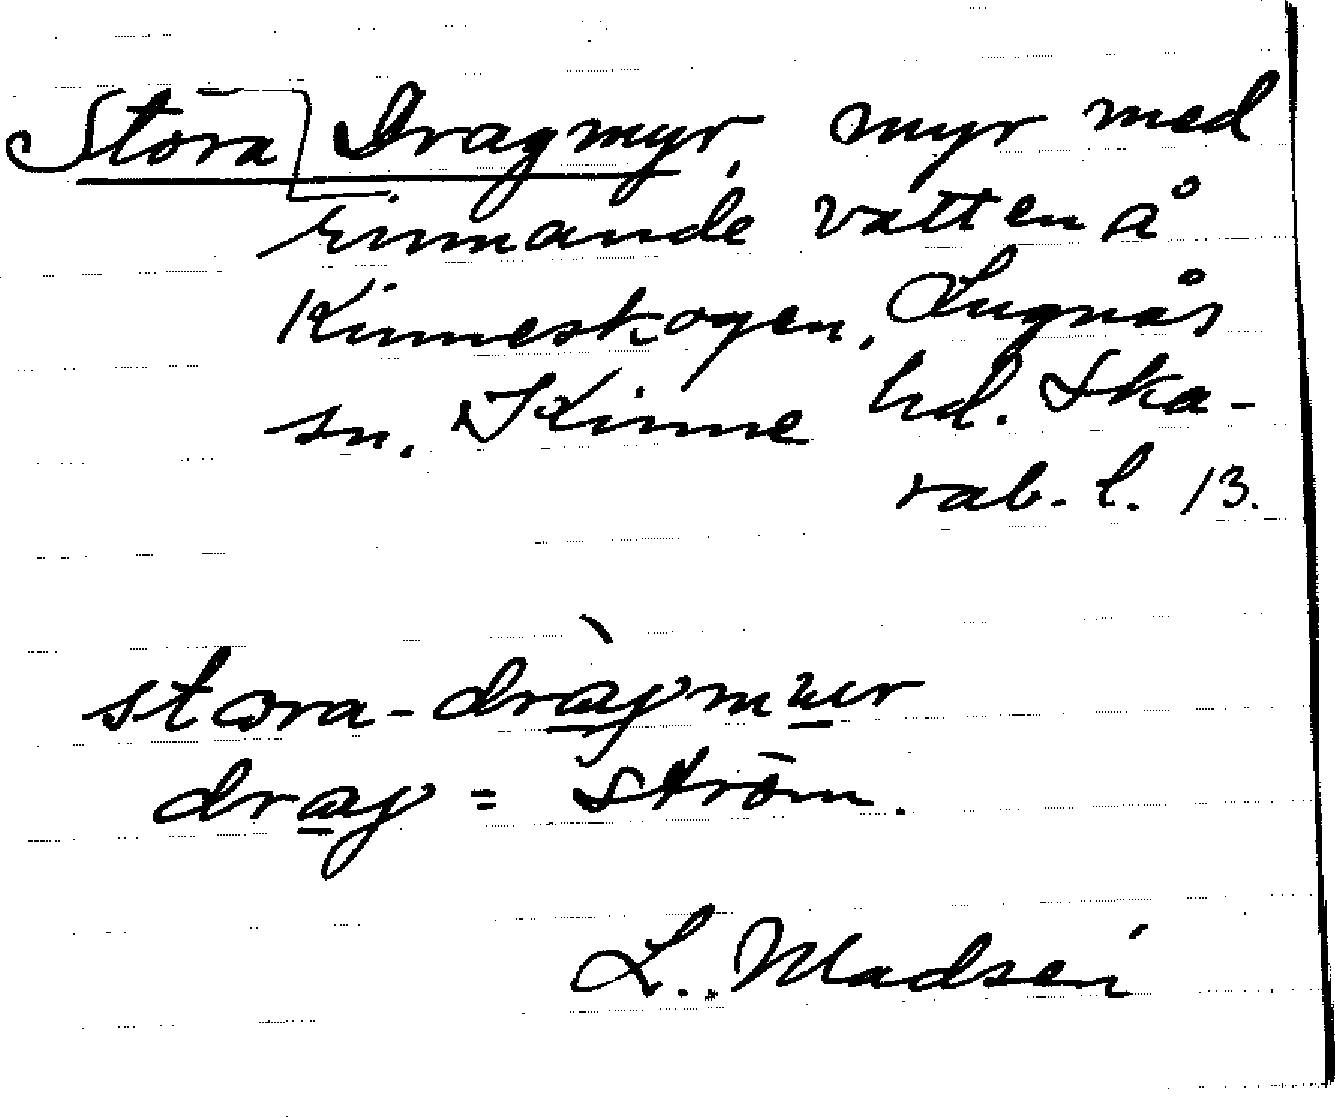 Stora Dragmyr, myr med
rinnande vatten å
Kinneskogen, Lugnås
sn. Kinne hd. Ska-
rab. l. 13.
stora-dràgmuer
drag = ström.
L. Madsén